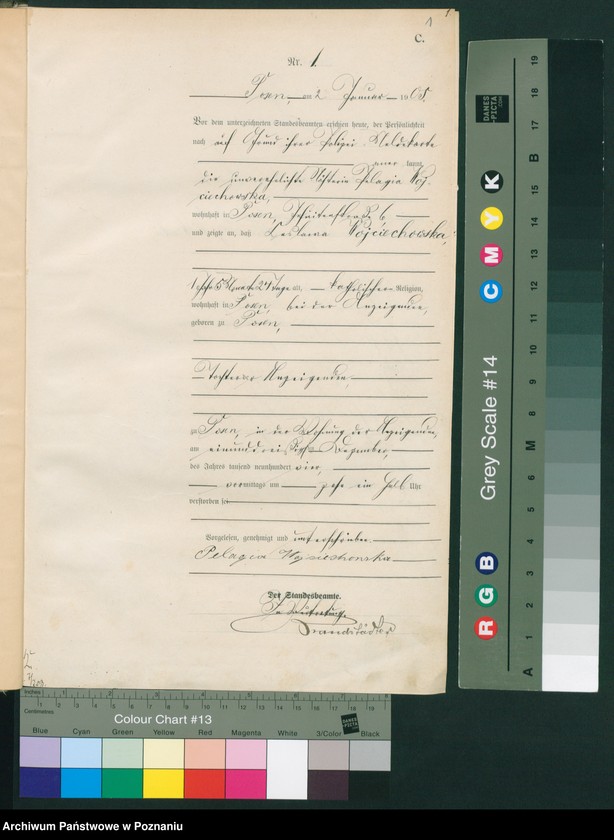 1
C.
Nr. 1
Posen, am 2 Januar 1905.
Vor dem unterzeichneten Standesbeamten erschien heute, der Persönlichkeit
nach auf Grund ihrer Polizei Meldekarte
aner kannt,
die unverehelichte Pelagia Woj-
ciechowska,
wohnhaft in Posen, 6,
und zeigte an, daß Czeslawa Wojciechowska,
5 Monate 24 Tage alt, katholischer Religion,
wohnhaft in Posen, bei der Anzeigenden,
geboren zu Posen,
Tochter der Anzeigenden,
zu Posen, in der Wohnung der Anzeigenden,
am einunddreißigsten Dezember,
des Jahres tausend neunhundert vier,
vormittags um zehn ein halb Uhr
verstorben sei
Vorgelesen, genehmigt und unterschrieben
Pelagia Wojciechowska
Der Standesbeamte.
In Vertretung
Brandstädter
Inches
Centimetres
Colour Chart #13
DANES
PICTA
Blue Cyan Green Yellow Red Magenta White 3/Color Black
Grey Scale #14
DANES
PICTA
.COM
R G B
C M Y K
A 1 2 3 4 5 6 M 8 9 10 11 12 13 14 15 B 17 18 19
Archiwum Państwowe w Poznaniu